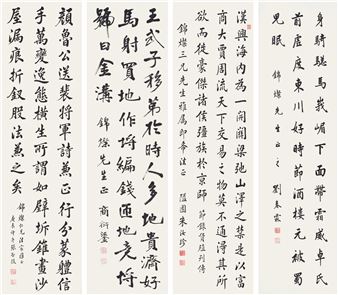 身騎驄馬峩嵋下面帶霜威卓氏
前虛度東川好時節酒樓元被蜀
兒眠 錦燦先生正之 劉春霖
漢興海內為一開關梁弛山澤之禁是以富
商大賈周流天下交易之物莫不通得其所
欲而徙豪傑諸侯彊族於京師 節錄貨殖列傳
錦燦三兄先生雅屬即希法正 隘園朱汝珍
王武子移第於時人多地貴濟好
馬射買地作埒編錢匝地竟埒
號曰金溝 錦燦先生正 商衍鎏
顏魯公送裴將軍詩兼正行分篆體信
手萬變逸態橫生所謂如壁坼錐畫沙
屋漏痕折釵股法兼之矣 錦燦仁兄法家雅正